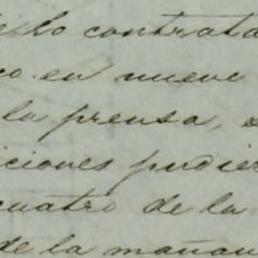 contrata
en nueve
la prensa,
iciones pudier
cuatro de la
de la mañan